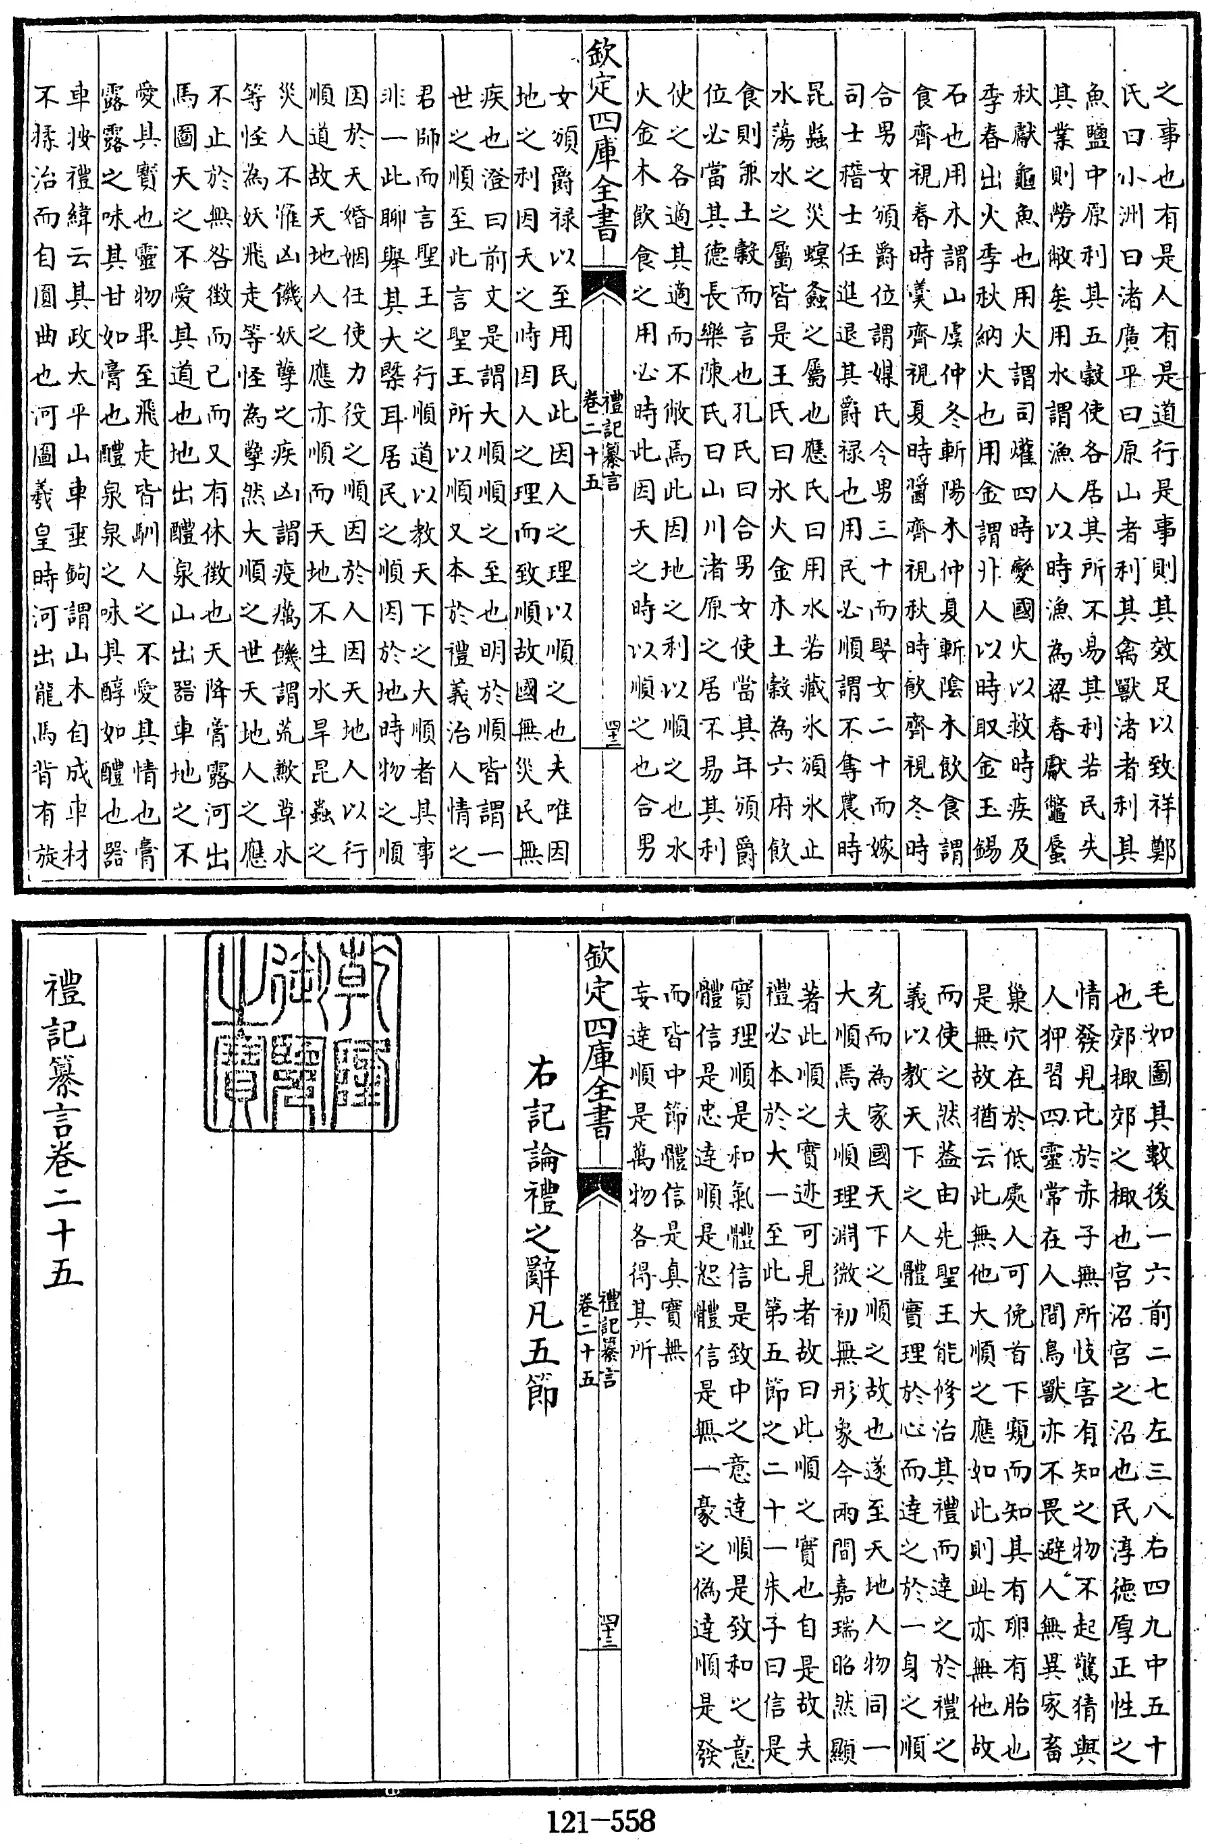 之事也有是人有是道行是事則其效足以致祥鄭
氏曰小洲曰渚廣平曰原山者利其禽獸渚者利其
魚鹽中原利其五穀使各居其所不易其利若民失
其業則勞敝矣用水謂漁人以時漁為梁春獻鼈蜃
秋獻龜魚也用火謂司爟四時變國火以救時疾及
季春出火季秋納火也用金謂卝人以時取金玉錫
石也用木謂山虞仲冬斬陽木仲夏斬陰木飲食謂
食齊視春時羮齊視夏時醬齊視秋時飲齊視冬時
合男女頒爵位謂媒氏令男三十而娶女二十而嫁
司士稽士任進退其爵禄也用民必順謂不奪農時
昆蟲之災螟螽之屬也應氏曰用水若藏氷頒氷止
水蕩水之屬皆是王氏曰水火金木土穀為六府飲
食則兼土穀而言也孔氏曰合男女使當其年頒爵
位必當其德長樂陳氏曰山川渚原之居不易其利
使之各適其適而不敝焉此因地之利以順之也水
火金木飲食之用必時此因天之時以順之也合男
欽定四庫全書
禮記纂言
卷二十五
四十二
女頒爵禄以至用民此因人之理以順之也夫唯因
地之利因天之時因人之理而致順故國無災民無
疾也澄曰前文是謂大順順之至也明於順皆謂一
世之順至此言聖王所以順又本於禮義治人情之
君師而言聖王之行順道以教天下之大順者其事
非一此聊舉其大槩耳居民之順因於地時物之順
因於天婚姻任使力役之順因於人因天地人以行
順道故天地人之應亦順而天地不生水旱昆蟲之
災人不惟凶饑妖孽之疾凶謂疫癘饑謂荒歉草木
等怪為妖飛走等怪為孽然大順之世天地人之應
不止於無咎徴而已而又有休徴也天降膏露河出
馬圖天之不愛其道也地出醴泉山出器車地之不
愛其寳也靈物畢至飛走皆馴人之不愛其情也膏
露露之味其甘如膏也醴泉泉之味其醇如醴也器
車按禮緯云其政太平山車垂鉤謂山木自成車材
不揉治而自圓曲也河圖羲皇時河出龍馬背有旋
毛如圖其數後一六前二七左三八右四九中五十
也郊棷郊之棷也宫沼宫之沼也民淳德厚正性之
情發見比於赤子無所忮害有知之物不起驚猜與
人狎習四靈常在人間鳥獸亦不畏避人無異家畜
巢穴在於低處人可俛首下窺而知其有卵有胎也
是無故猶云此無他大順之應如此則此亦無他故
而使之然葢由先聖王能修治其禮而達之於禮之
義以教天下之人體實理於心而達之於一身之順
充而為家國天下之順之故也遂至天地人物同一
大順焉夫順理淵微初無形象今兩間嘉瑞昭然顯
著此順之實迹可見者故曰此順之實也自是故夫
禮必本於大一至此第五節之二十一朱子曰信是
實理順是和氣體信是致中之意達順是致和之意
體信是忠達順是恕體信是無一豪之偽達順是發
而皆中節體信是真實無
妄達順是萬物各得其所
欽定四庫全書
禮記纂言
卷二十五
四十三
右記論禮之辭凡五節
乾隆御覽之寶
禮記纂言卷二十五
121-558